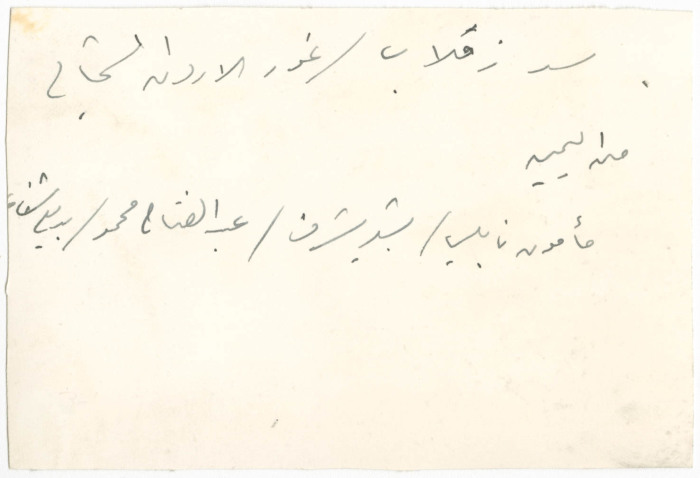 سد زقلاب / غور الاردن الشمالي
من اليمين
مأمون نابلسي / رشيد شرف / عبد الفتاح محمود / بديع